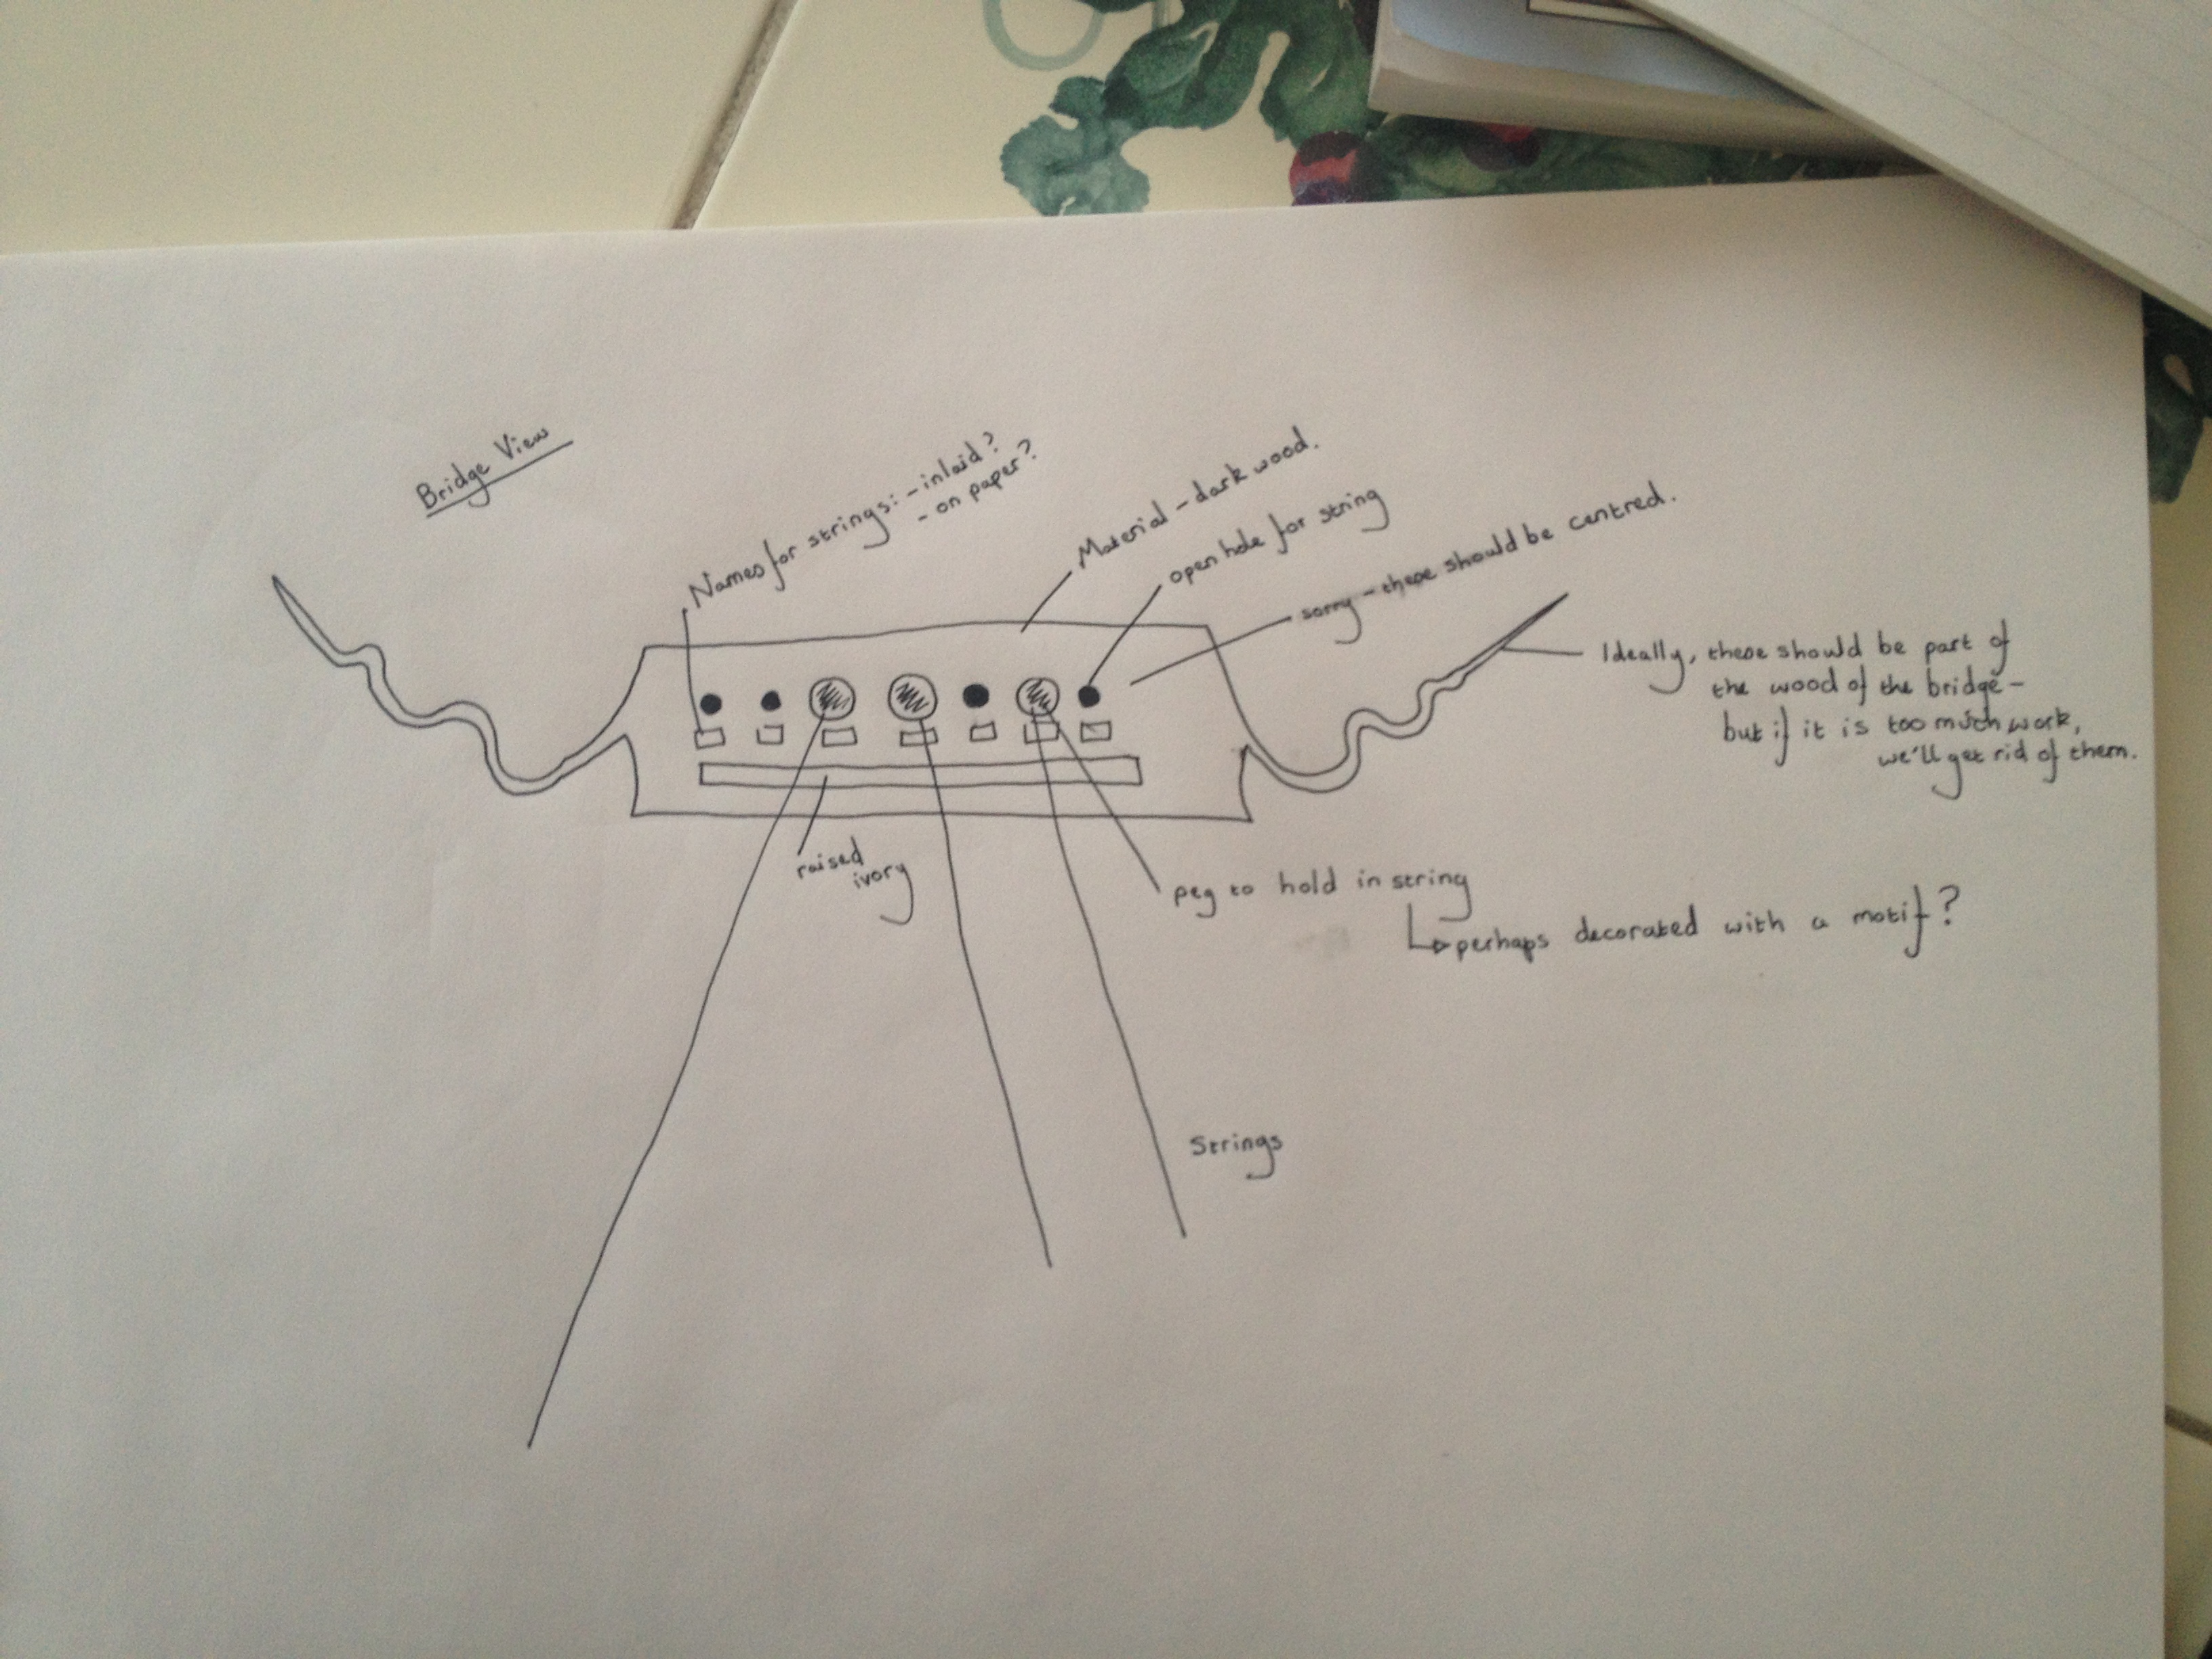 Bridge View
Names for strings: - inlaid?
- on paper?
Material - dark wood.
open hole for string
sorry - these should be centred.
Ideally, these should be part of
the wood of the bridge -
but if it is too much work,
we'll get rid of them.
raised
ivory
peg to hold in string
perhaps decorated with a motif?
Strings